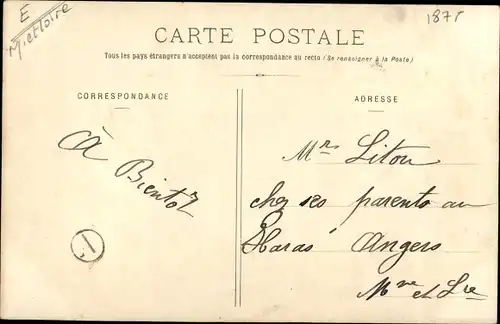 E
M et Loire
187
CARTE POSTALE
Tous les pays étrangers n'acceptent pas la correspondance au recto (Se renseigner à la Poste)
CORRESPONDANCE
ADRESSE
à Bientôt
Mr Litou
chez ses parents au
Haras Angers
Mne et Lre